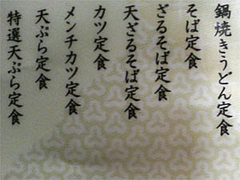 鍋焼きうどん定食
そば定食
ざるそば定食
天ざるそば定食
カツ定食
メンチカツ定食
天ぷら定食
特選天ぷら定食